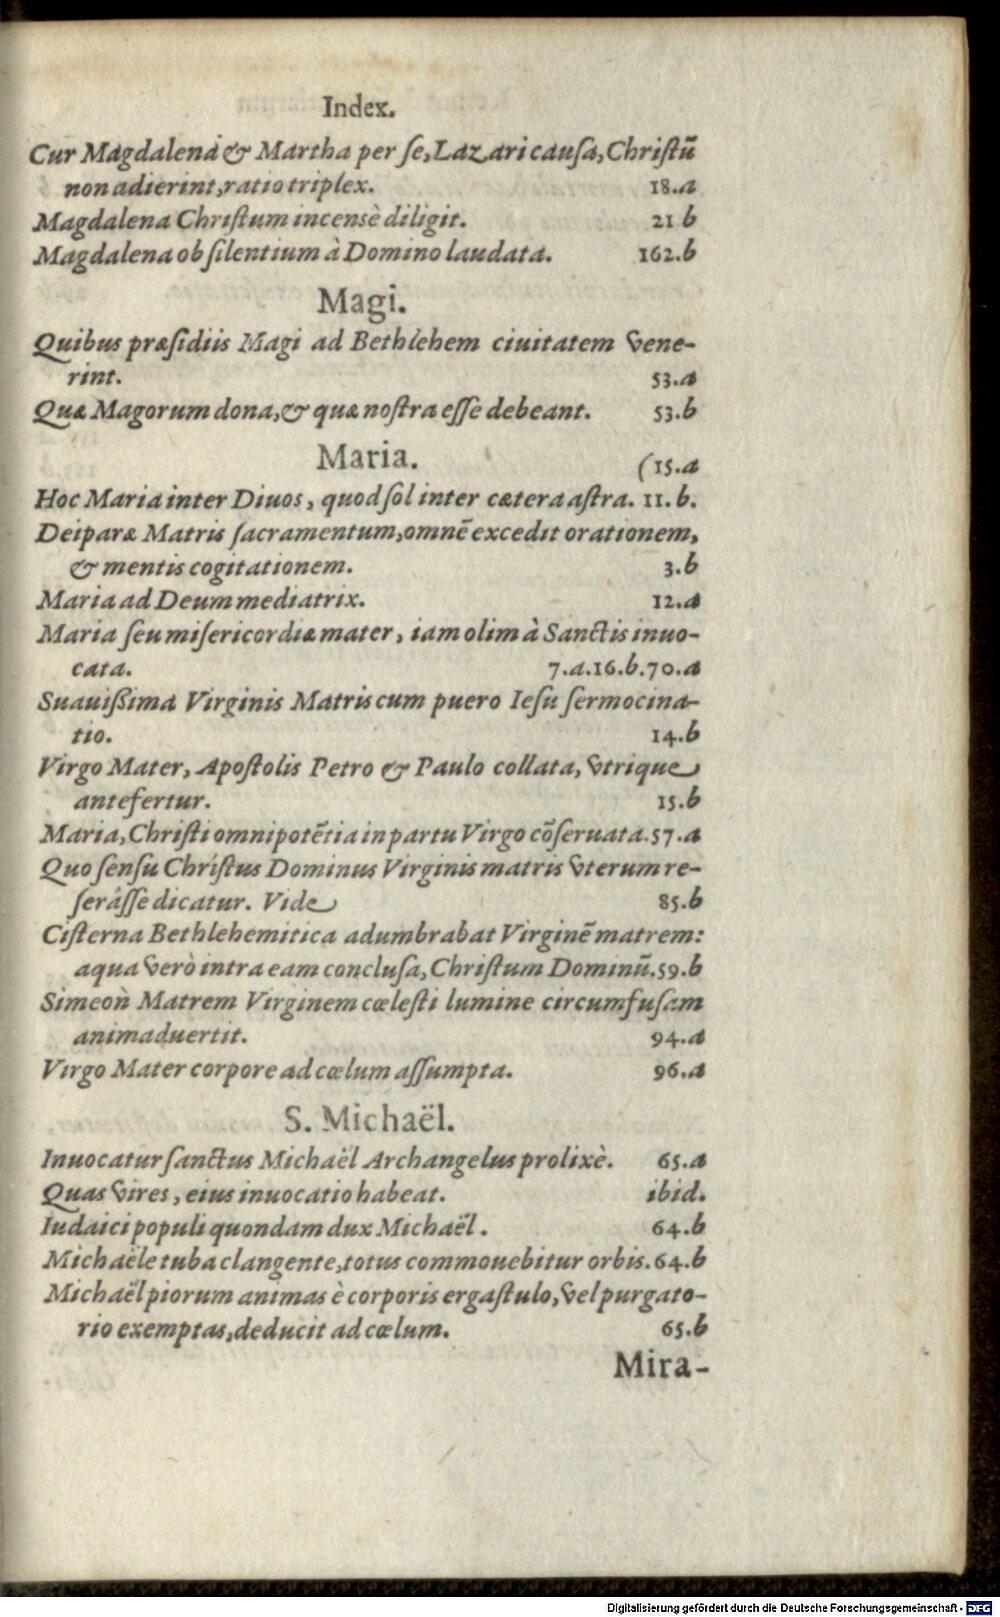 Index.
Cur Magdalena & Martha per ſe, Lazari cauſa, Chriſtū
non adierint, ratio triplex. 18.a
Magdalena Chriſtum incensè diligit. 21 b
Magdalena ob ſilentium à Domino laudata. 162.b
Magi.
Quibus præſidiis Magi ad Bethlehem ciuitatem vene-
rint. 53.a
Quæ Magorum dona, & quæ noſtra eſſe debeant. 53.b
Maria. (15.a
Hoc Maria inter Diuos, quod ſol inter cætera aſtra. 11.b.
Deiparæ Matris ſacramentum, omnē excedit orationem,
& mentis cogitationem. 3.b
Maria ad Deum mediatrix. 12.a
Maria ſeu miſericordiæ mater, iam olim à Sanctis inuo-
cata. 7.a.16.b.70.a
Suauißima Virginis Matris cum puero Ieſu ſermocina-
tio. 14.b
Virgo Mater, Apoſtolis Petro & Paulo collata, vtrique
antefertur. 15.b
Maria, Chriſti omnipotētia in partu Virgo cōſeruata. 57.a
Quo ſenſu Chriſtus Dominus Virginis matris vterum re-
ſerâſſe dicatur. Vide 85.b
Ciſterna Bethlehemitica adumbrabat Virginē matrem:
aqua verò intra eam concluſa, Chriſtum Dominū. 59.b
Simeon Matrem Virginem cœleſti lumine circumfuſam
animaduertit. 94.a
Virgo Mater corpore ad cœlum aſſumpta. 96.a
S. Michaël.
Inuocatur ſanctus Michaël Archangelus prolixè. 65.a
Quas vires, eius inuocatio habeat. ibid.
Iudaici populi quondam dux Michaël. 64.b
Michaële tuba clangente, totus commouebitur orbis. 64.b
Michaël piorum animas è corporis ergaſtulo, vel purgato-
rio exemptas, deducit ad cœlum. 65.b
Mira-
Digitalisierung gefördert durch die Deutsche Forschungsgemeinschaft - DFG